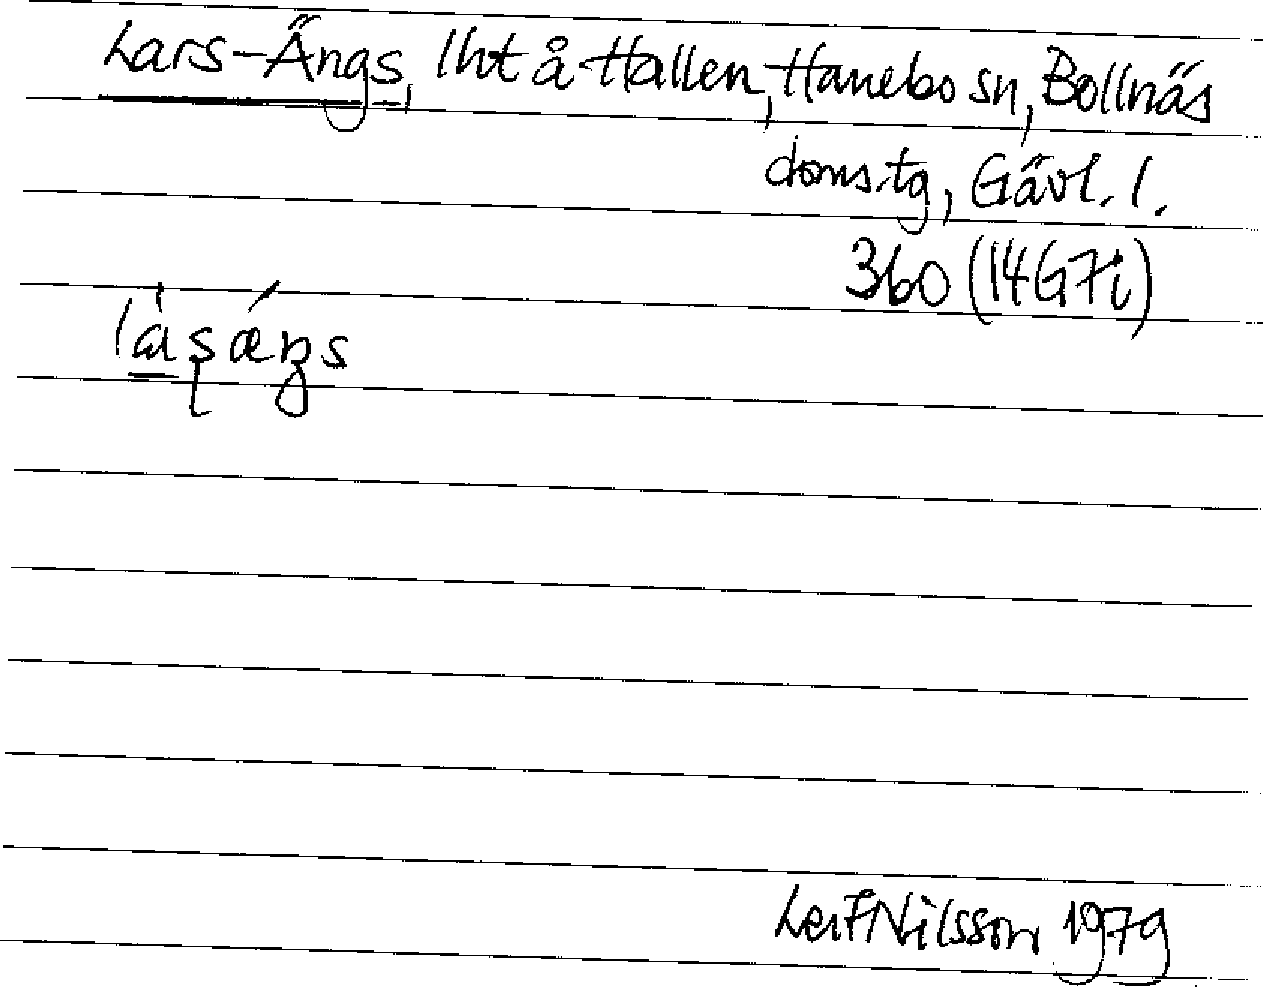 Lars-Ängs, lht å Hallen, Hanebo sn, Bollnäs
doms.tg, Gävl. l.
360 (14G7i)
Leif Nilsson 1979